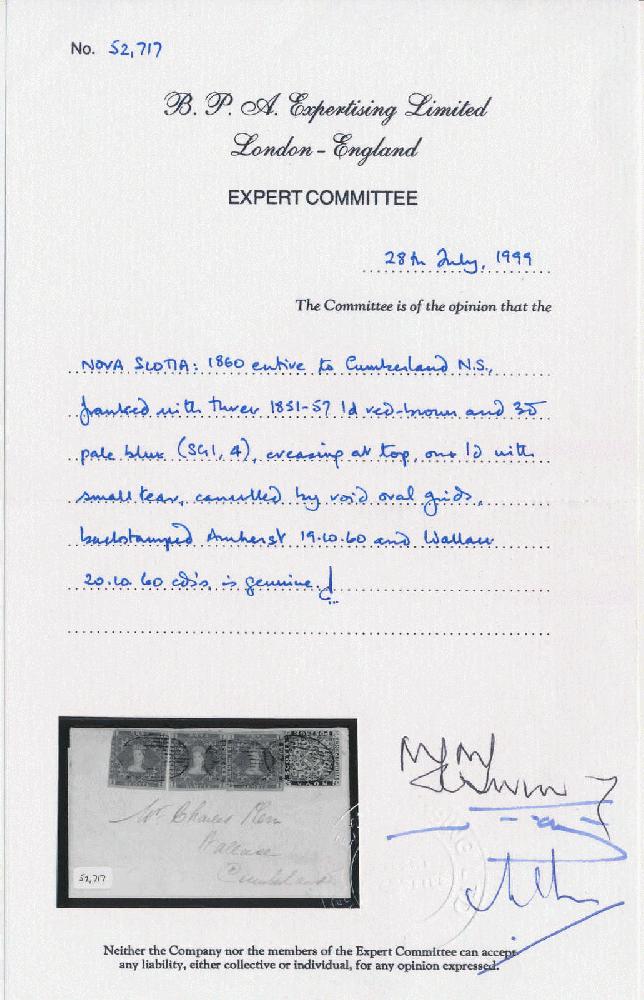 No. 52,717
B. P. A. Expertising Limited
London - England
EXPERT COMMITTEE
28th July, 1999
The Committee is of the opinion that the
NOVA SCOTIA: 1860 entire to Cumberland N.S.,
franked with three 1851-57 1d red-brown and 3d
pale blue (SG1, 4), creasing at top, one 1d with
small tear, cancelled by void oval grids,
backstamped Amherst 19.10.60 and Wallace
20.10.60 cds's, is genuine.
Mr Charles
Wallace
Cumberland
52,717
Neither the Company nor the members of the Expert Committee can accept
any liability, either collective or individual, for any opinion expressed.